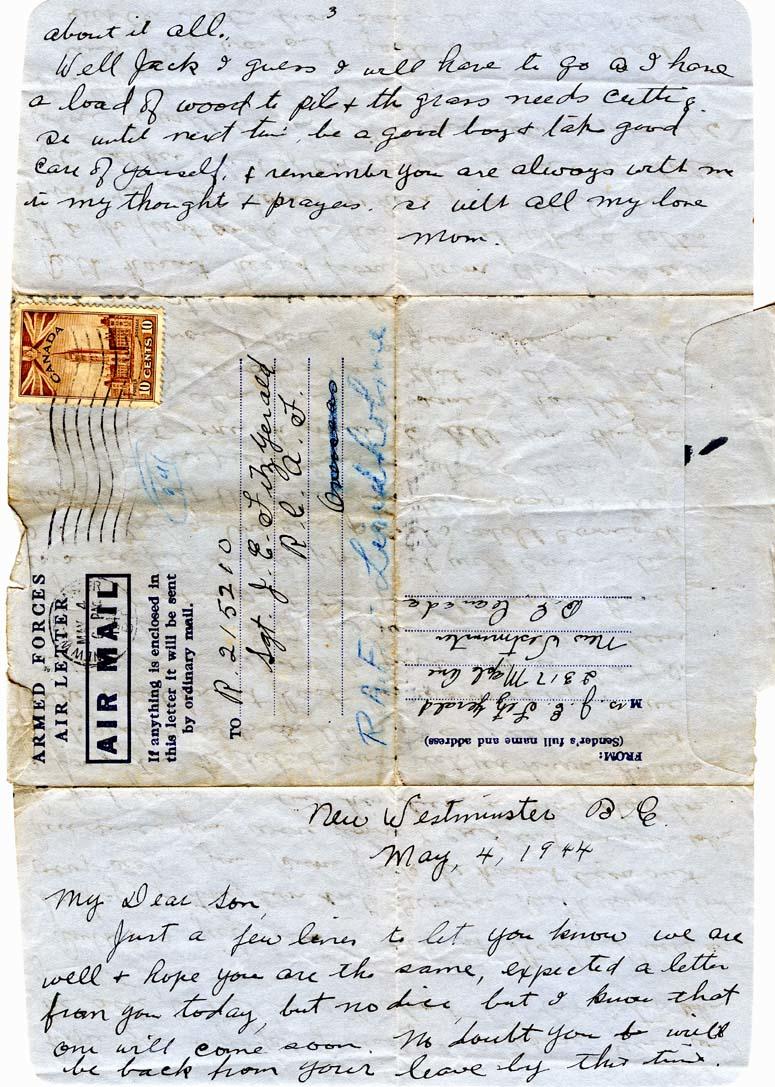 3
about it all.
Well Jack I guess I will have to go as I have
a load of wood to pile & the grass needs cutting.
so until next time be a good boy & take good
care of yourself. & remember you are always with me
in my thoughts & prayers. so with all my love
Mom.
CANADA
10 CENTS 10
ARMED FORCES
AIR LETTER
AIR MAIL
If anything is enclosed in
this letter it will be sent
by ordinary mail.
TO R. 215210
Sgt. J. E. FitzGerald
R. C. A. F.
Overseas
RAF.
FROM:
(Sender's full name and address)
Mrs J. E. FitzGerald
2317 Maple Ave
New Westminster
B.C. Canada
New Westminster B.C.
May, 4, 1944
My Dear Son,
Just a few lines to let you know we are
well & hope you are the same, expected a letter
from you today, but no dice, but I know that
one will come soon. No doubt you will
be back from your leave by this time.